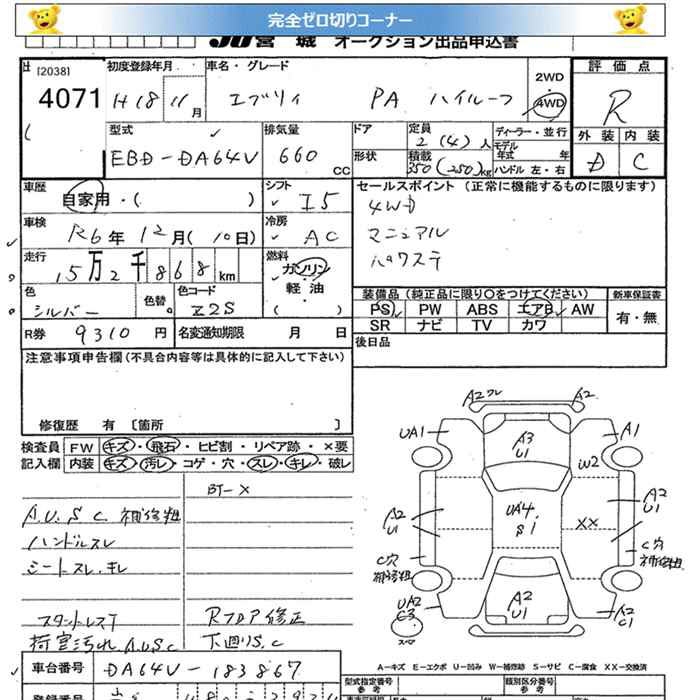 完全ゼロ切りコーナー
JU宮城 オークション出品申込書
[2038]
4071
初度登録年月 H18 11月
車名・グレード エブリィ PA ハイルーフ
2WD
4WD
評価点
R
外装 内装
D C
型式 EBD-DA64V
排気量 660 CC
ドア
形状
定員 2 (4) 人
積載 350 (250) kg
ディーラー・並行
モデル年式 年
ハンドル 左・右
車歴 自家用・( )
シフト I5
車検 R6年 12月 (10日)
冷房 AC
走行 15万2千868km
燃料 ガソリン・軽油
( )
色 シルバー
色替
色コード Z2S
R券 9310円
名変通知期限 月 日
セールスポイント (正常に機能するものに限ります)
4WD
マニュアル
パワステ
装備品 (純正品に限り○をつけてください)
PS PW ABS エアB AW
SR ナビ TV カワ
新車保証書
有・無
後日品
注意事項申告欄(不具合内容等は具体的に記入して下さい)
修復歴 有 [箇所 ]
検査員記入欄
FW キズ・飛石・ヒビ割・リペア跡・×要
内装 キズ・汚レ・コゲ・穴・スレ・キレ・破レ
BT-X
A.U.S.C. 補修粗
ハンドルスレ
シートスレ.キレ
スタットレス
荷室汚れ.A.U.S.C
Rフロア修正
下廻りS.C
A2 ワレ
A2
UA1
A1
A3
U1
W2
A2
U1
UA4
S1
XX
A2
U1
C穴
補修粗
C穴
補修粗
UA2
C3
A2
U1
A2
C1
スペア
A-キズ E-エクボ U-凹み W-補修跡 S-サビ C-腐食 XX-交換済
車台番号 DA64V-183867
型式指定番号
参考
類別区分番号
参考
登録番号